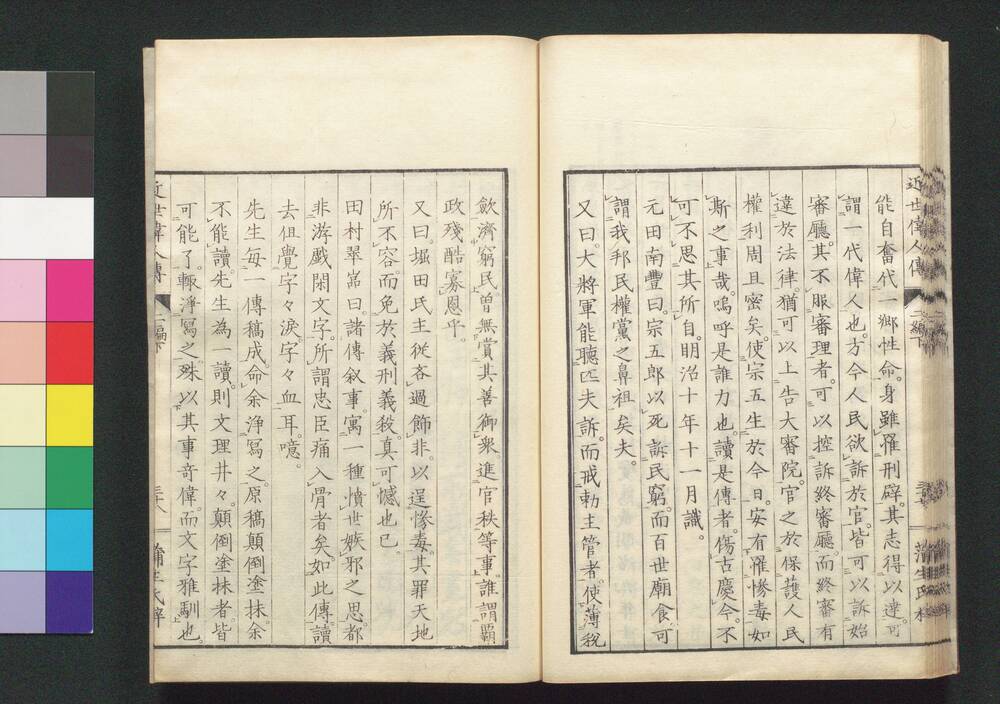 近世偉人傳
二編下
蒲生氏梓
能自奮代一鄉性命。身雖罹刑辟。其志得以達。可
謂一代偉人也。方今人民欲訴於官。皆可以訴始
審廳。其不服審理者。可以控訴終審廳。而終審有
違於法律。猶可以上告大審院。官之於保護人民
權利周且密矣。使宗五生於今日。安有罹慘毒如
斯之事哉。嗚呼是誰力也。讀是傳者。傷古慶今。不
可不思其所自。明治十年十一月識。
元田南豐曰。宗五郎以死訴民窮。而百世廟食。可
謂我邦民權黨之鼻祖矣夫。
又曰。大將軍能聽匹夫訴。而戒勅主管者。使薄稅
斂濟窮民。曾無賞其善御衆進官秩等事。誰謂霸
政殘酷寡恩乎。
又曰。堀田氏主從吝過飾非。以逞慘毒。其罪天地
所不容。而免於義刑義殺。真可憾也已。
田村翠嵒曰。諸傳叙事。寓一種憤世嫉邪之思。都
非游戲閑文字。所謂忠臣痛入骨者矣。如此傳。讀
去但覺字々淚。字々血耳。噫。
先生每一傳稿成。命余淨寫之。原稿顛倒塗抹。余
不能讀。先生為一讀。則文理井々。顛倒塗抹者皆
可能了。輙淨寫之。殊以其事奇偉。而文字雅馴也。
近世偉人傳
二編下
三十八
蒲生氏梓